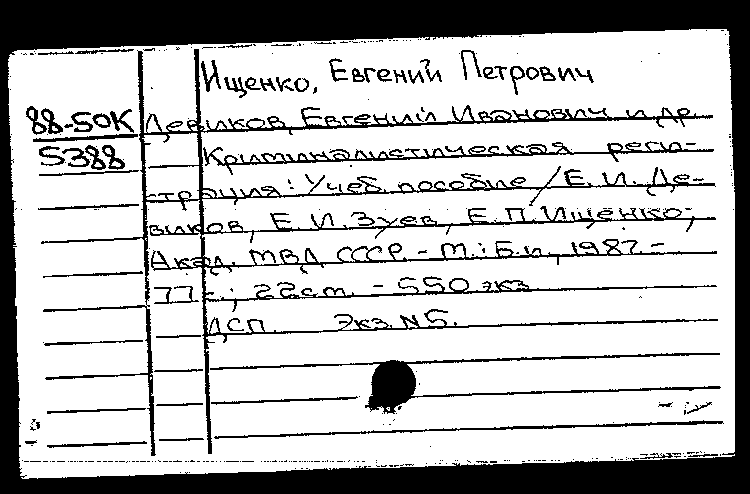 Ищенко, Евгений Петрович
88-50К Девиков, Евгений Иванович и др.
5388 Криминалистическая реги-
страция: Учеб. пособие / Е. И. Де-
виков, Е. И. Зуев, Е. П. Ищенко;
Акад. МВД СССР. - М.: Б.и., 1987. -
77 с.; 22 см. - 550 экз.
ДСП. Экз. N5.